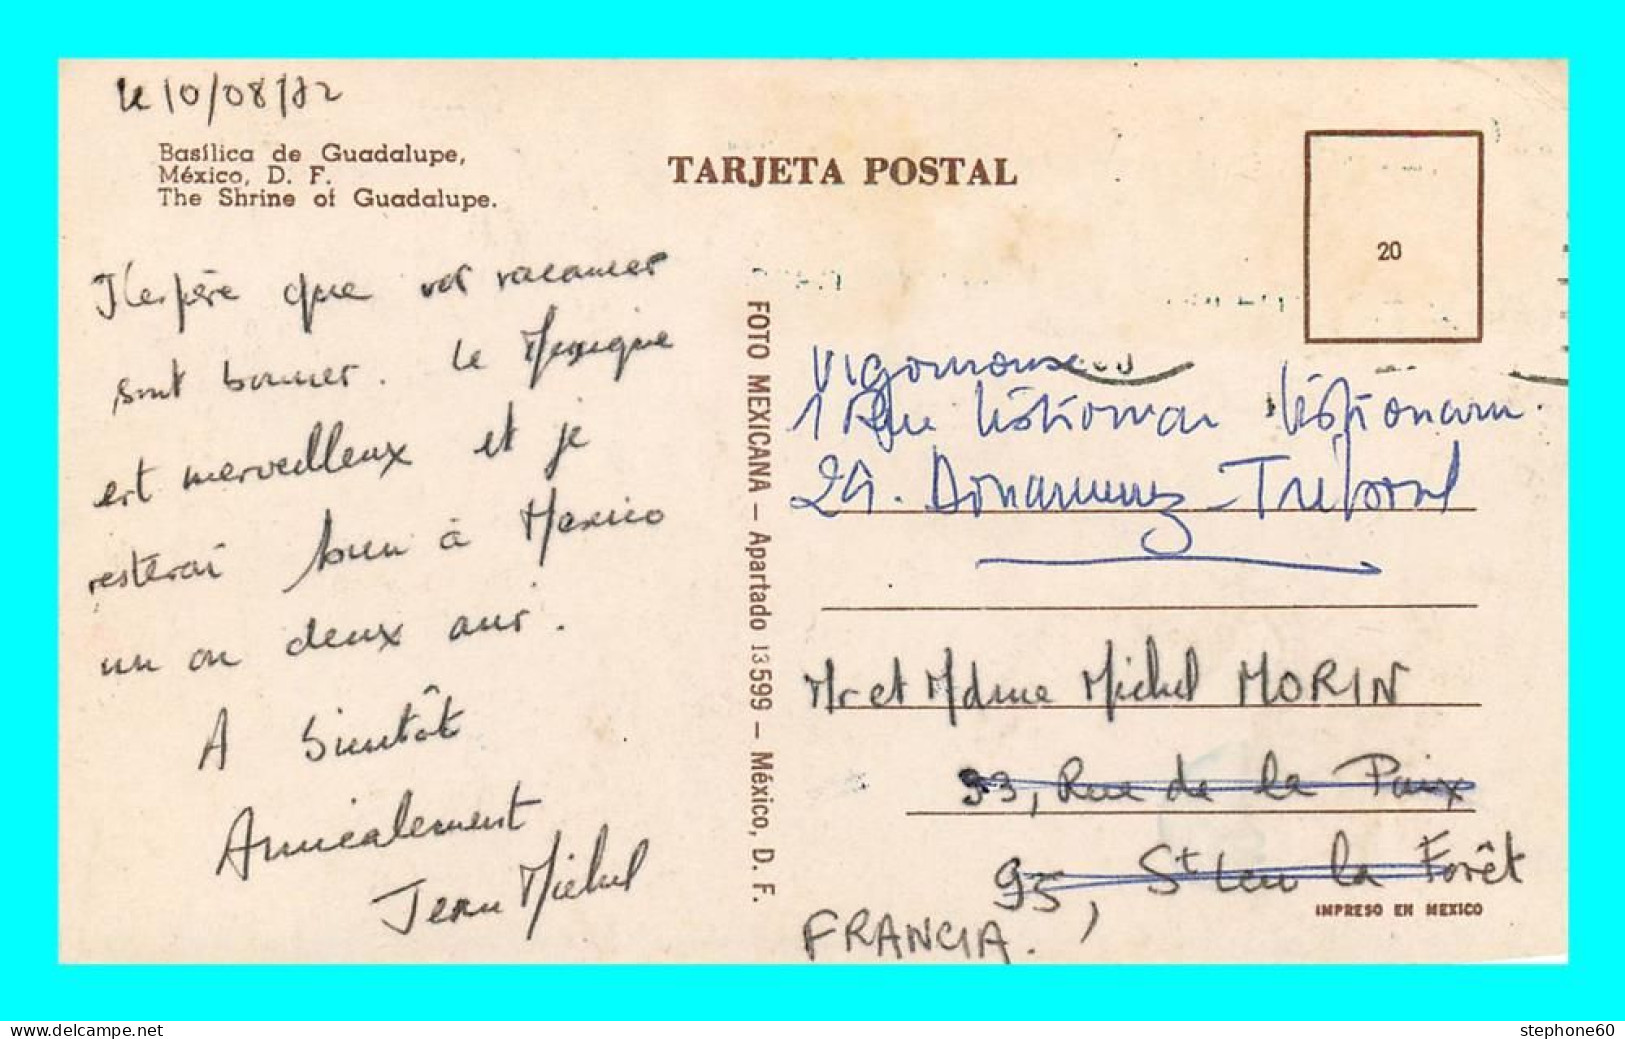 le 10/08/72
Basílica de Guadalupe,
México, D. F.
The Shrine of Guadalupe.
TARJETA POSTAL
20
J'espère que vos vacances
sont bonnes. Le Mexique
est merveilleux et je
resterai bien à Mexico
un ou deux ans.
A bientôt
Amicalement
Jean Michel
FOTO MEXICANA – Apartado 13599 – México, D. F.
1 Rue
29. Douarnenez - Tréboul
Mr et Mdme Michel MORIN
93, Rue de la Paix
95, St Leu la Forêt
FRANCIA.
IMPRESO EN MEXICO
delcampe.net
stephone60